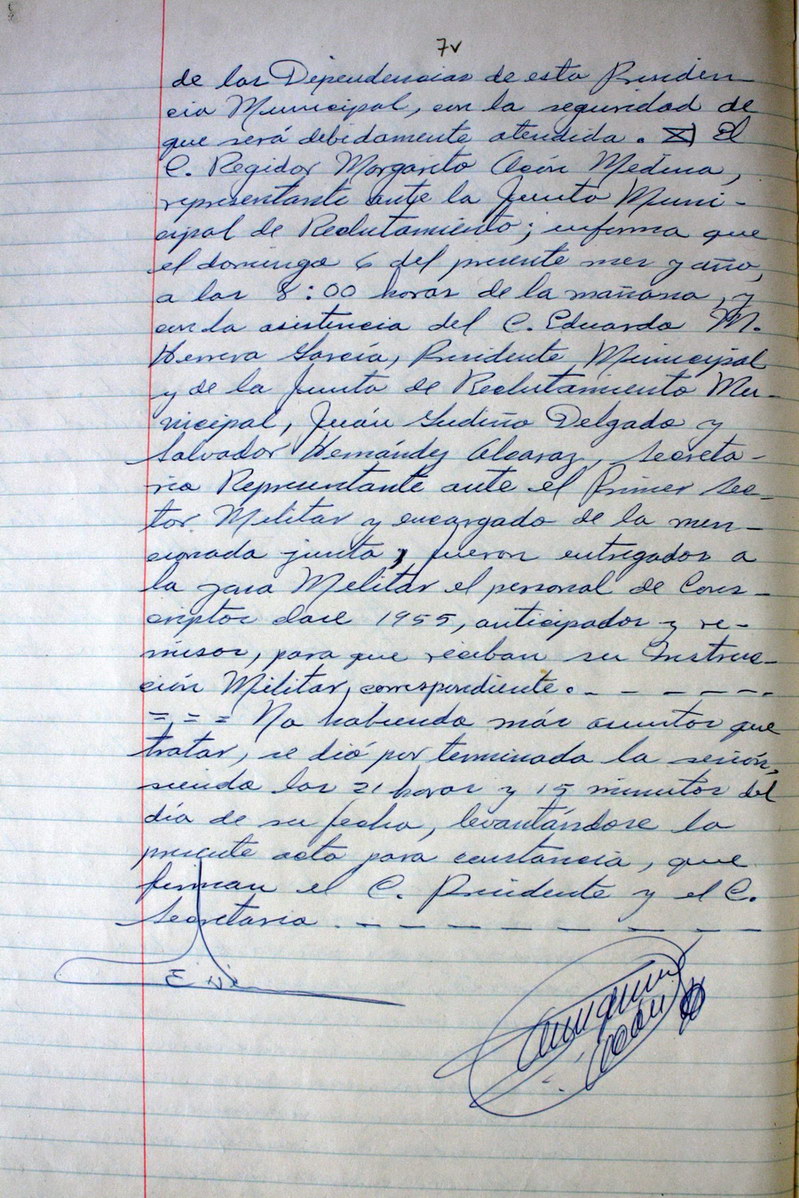 7v
de las Dependencias de esta Presiden-
cia Municipal, con la seguridad de
que será debidamente atendida. X) El
C. Regidor Margarito León Medina,
representante ante la Junta Muni-
cipal de Reclutamiento; informa que
el domingo 6 del presente mes y año,
a las 8:00 horas de la mañana, y
con la asistencia del C. Eduardo M.
Herrera García, Presidente Municipal
y de la Junta de Reclutamiento Mu-
nicipal, Juán Gudiño Delgado y
Salvador Hernández Alcaraz, Secreta-
rio Representante ante el Primer Sec-
tor Militar y encargado de la men-
cionada junta, fueron entregados a
la zona Militar el personal de Cons-
criptos clase 1955, anticipados y re-
misos, para que reciban su Instruc-
ción Militar, correspondiente. - - - - - -
= = = No habiendo más asuntos que
tratar, se dió por terminada la sesión,
siendo las 21 horas y 15 minutos del
día de su fecha, levantándose la
presente acta para constancia, que
firman el C. Presidente y el C.
Secretario. - - - - - - - -